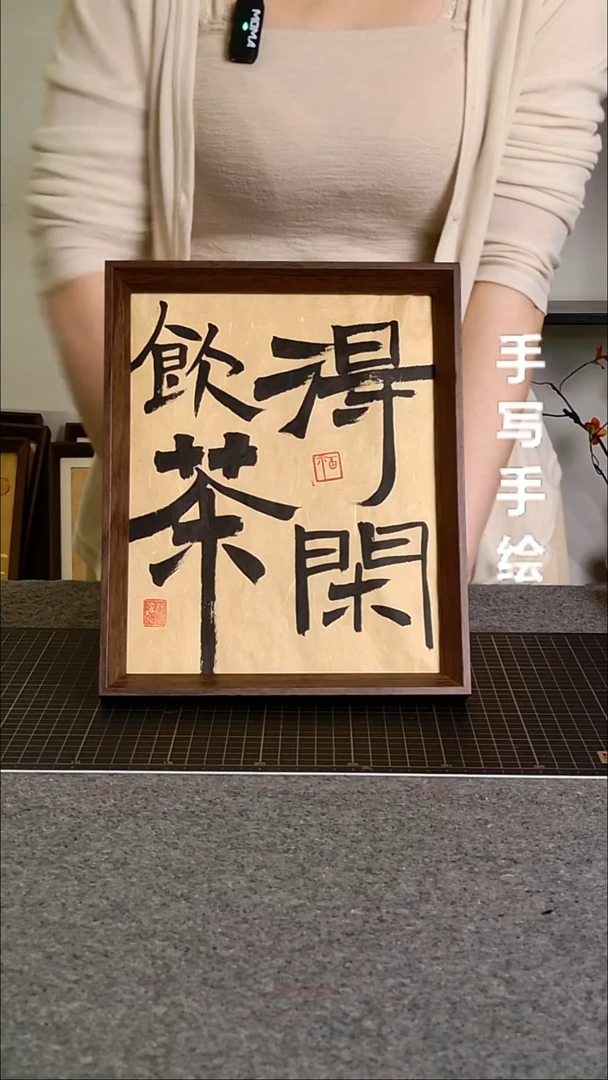 得閑
飲茶
手写手绘
MOMA